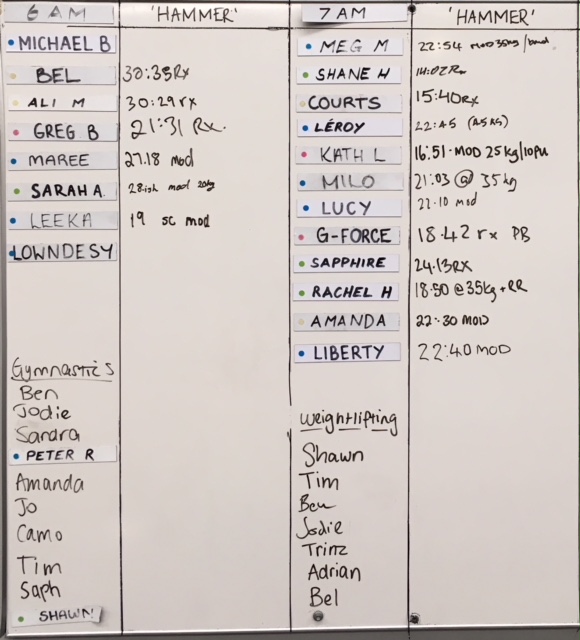 6 AM 'HAMMER'
MICHAEL B
BEL 30:35Rx
ALI M 30:29rx
GREG B 21:31 Rx.
MAREE 27.18 mod
SARAH A. 28ish mod 20kg
LEEKA 19 sc mod
LOWNDESY
Gymnastics
Ben
Jodie
Sandra
PETER R
Amanda
Jo
Camo
Tim
Saph
SHAWN
7 AM 'HAMMER'
MEG M 22:54 MOD 35kg/band
SHANE H 14:02Rx
COURTS 15:40Rx
LÉROY 22:45 (45KG)
KATH L 16.51 · MOD 25kg/10PU
MILO 21:03 @ 35kg
LUCY 22.10 mod
G-FORCE 18.42 rx PB
SAPPHIRE 24.13RX
RACHEL H 18.50 @35kg + RR
AMANDA 22:30 MOD
LIBERTY 22:40 MOD
Weightlifting
Shawn
Tim
Ben
Jodie
Trinz
Adrian
Bel